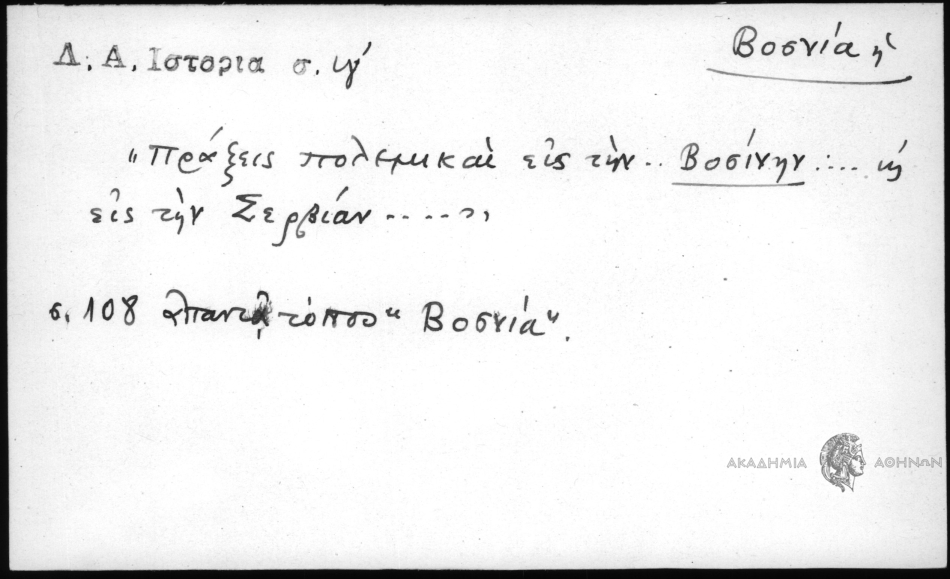 Δ. Α. Ιστορια σ. ιγ'
Βοσνία ἡ
"Πράξεις πολεμικαὶ εἰς τὴν.. Βοσίνην .... κὴ
εἰς τὴν Σερβίαν ....."
σ. 108 ἀπαντᾷ τὸ "Βοσνία".
ΑΚΑΔΗΜΙΑ ΑΘΗΝΩΝ